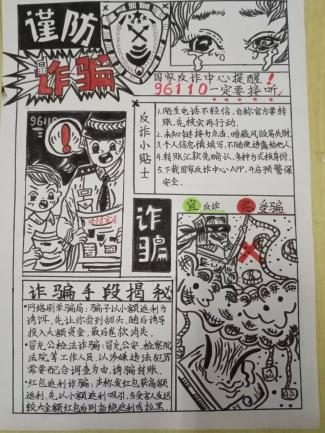 谨防
诈骗
国家反诈中心提醒！
96110一定要接听
96110
反诈小贴士
1.陌生电话不轻信，自称官方要转
账，先核实再行动.
2.未知链接勿点击，暗藏风险易失财.
3.个人信息慎填写，不随便透露给他人
4.转账汇款先确认，多种方式核身份.
5.下载国家反诈中心APP，开启预警保
安全.
诈骗
宜反诈 忌受骗
诈骗手段揭秘
•网络刷单骗局：骗子以小额返利为
诱饵，先让你尝到甜头，随后诱导
投入大额资金，最后卷款消失.
•冒充公检法诈骗：冒充公安、检察院
法院等工作人员，以涉嫌违法犯罪
需要配合调查为由，诱骗转账.
•红包返利诈骗：声称发红包获高额
返利，先以小额返利吸引，当受害人发送
较大金额红包后则拒绝返利或拉黑.